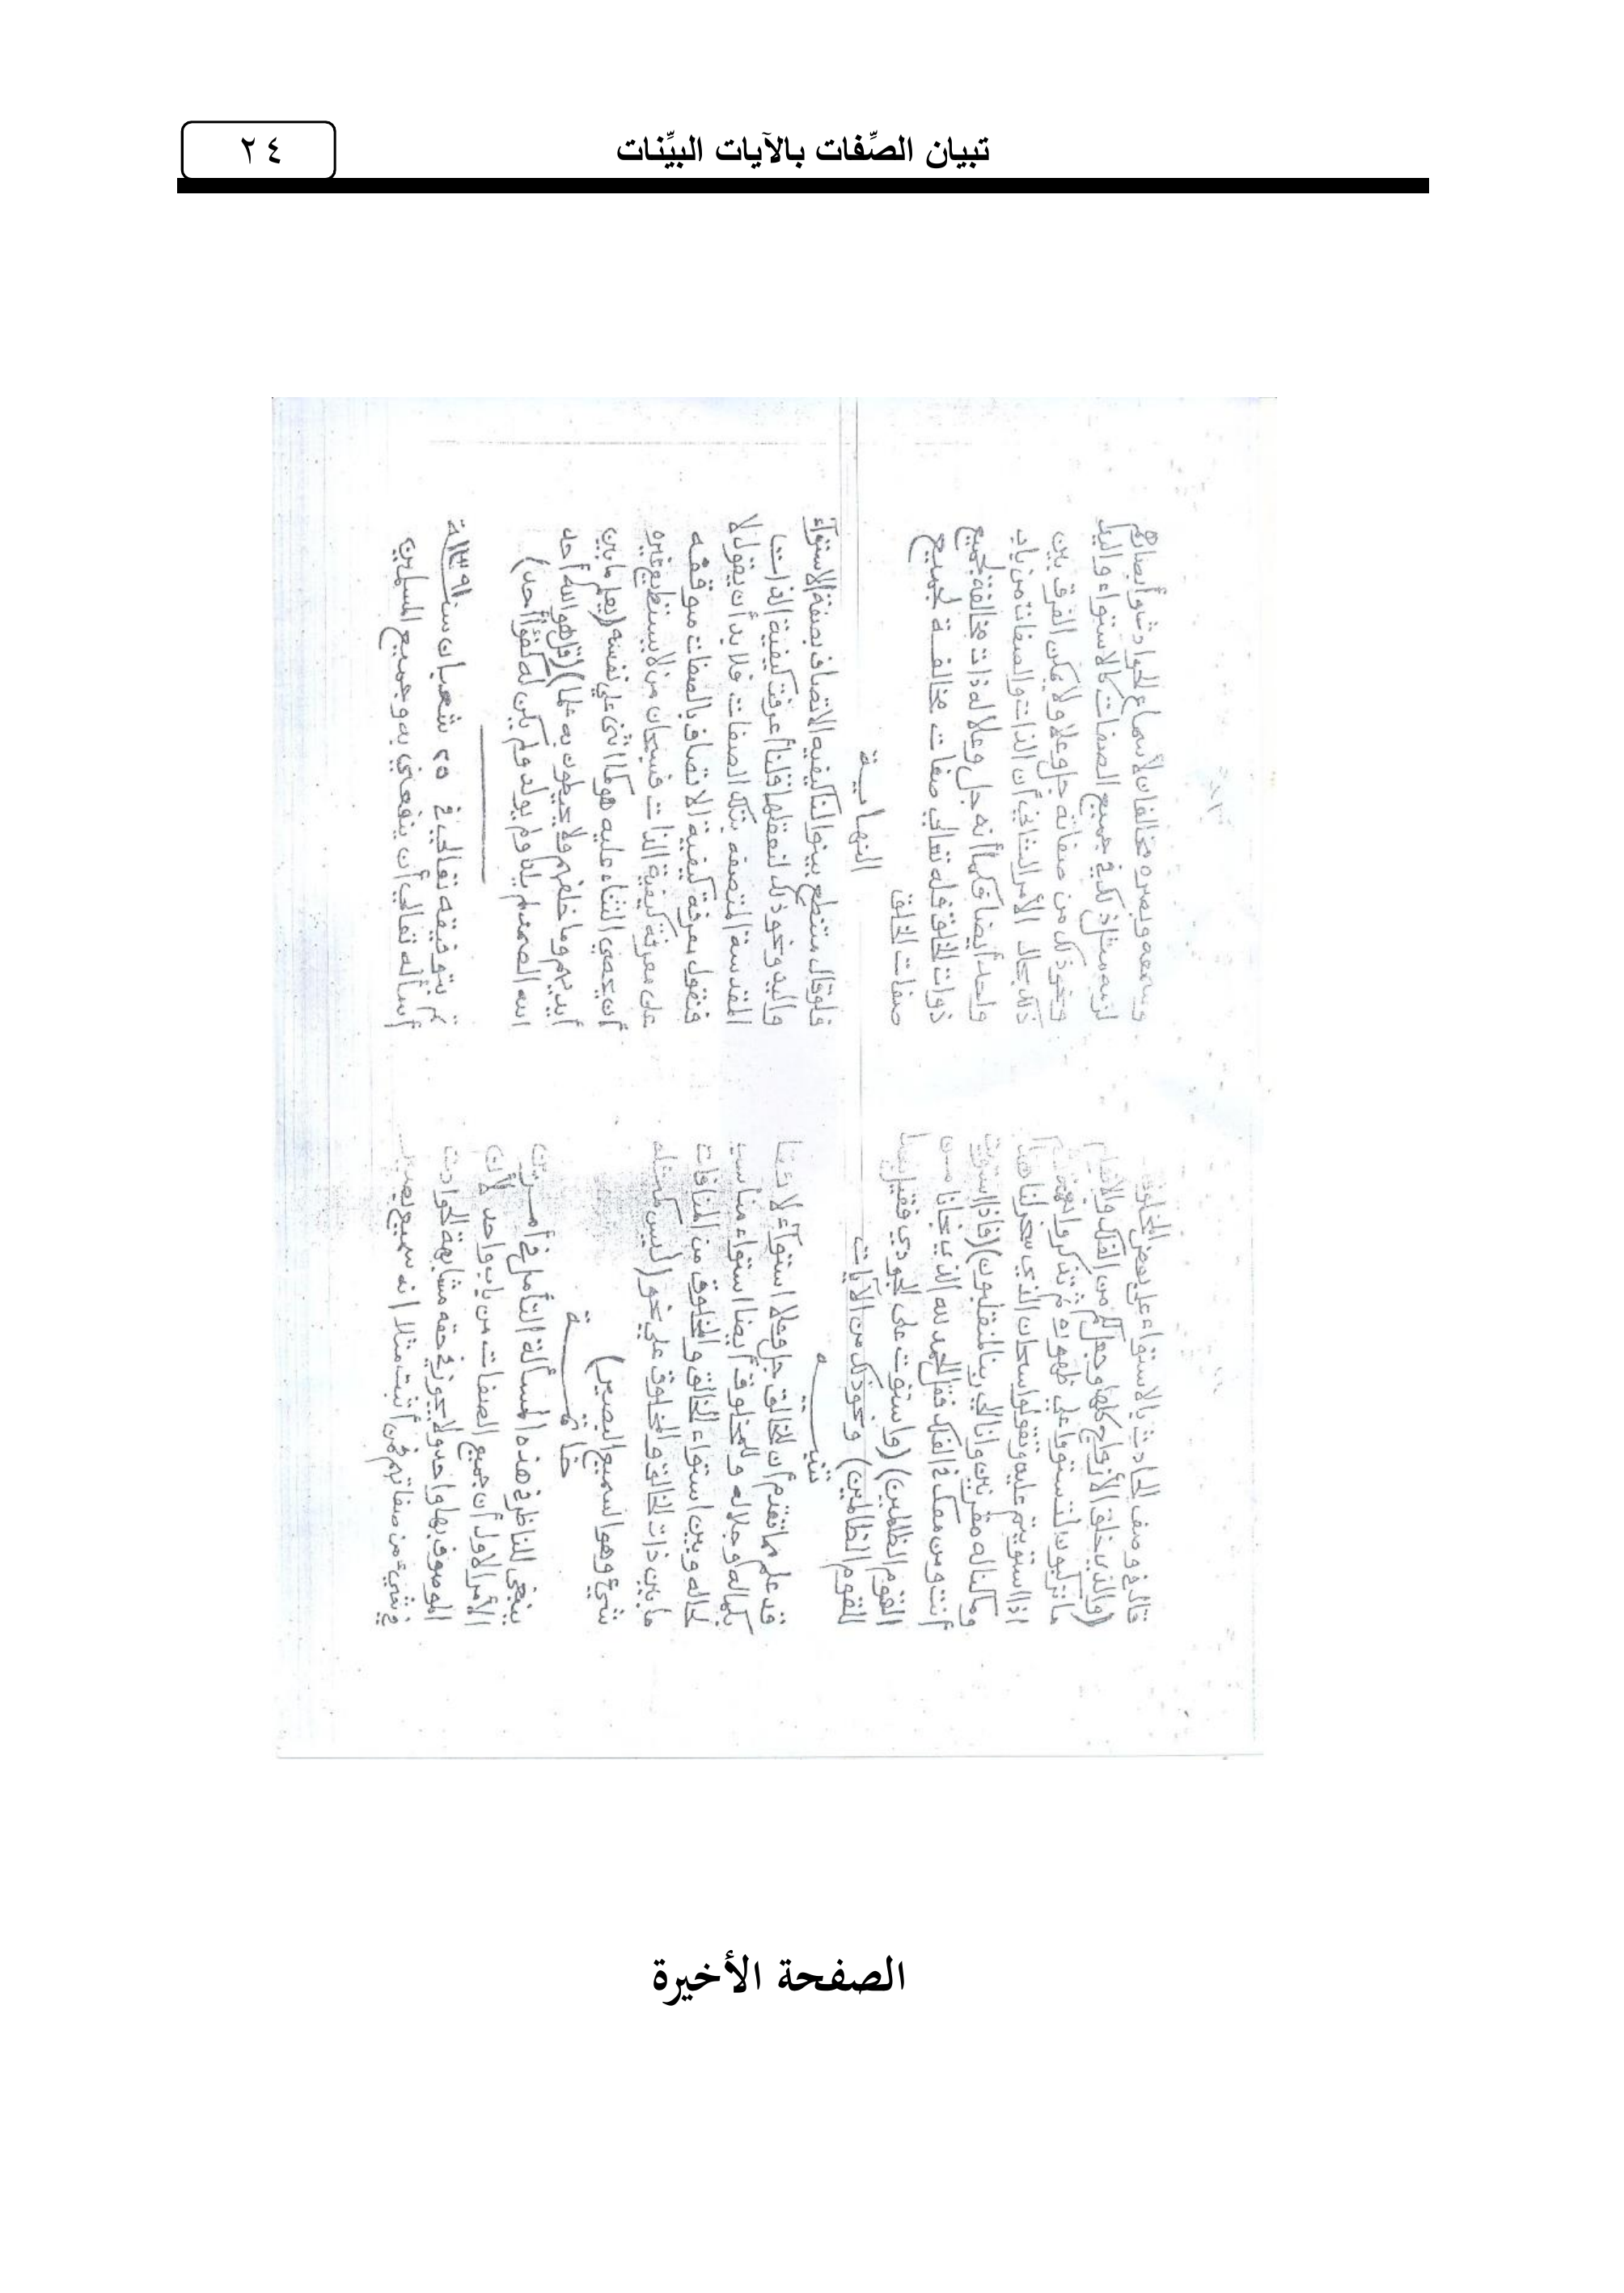 تبيان الصِّفات بالآيات البيِّنات
٢٤
قال في وصف الحادث بالاستواء على بعض المخلوقات
(والذي خلق الأزواج كلها وجعل لكم من الفلك والأنعام
ما تركبون لتستووا على ظهوره ثم تذكروا نعمة
اذا استويتم عليه وتقولوا سبحان الذي سخر لنا هذا
وما كنا له مقرنين وانا الى ربنا لمنقلبون) (فاذا استويت
أنت ومن معك في الفلك فقل الحمد لله الذي نجانا من
القوم الظالمين) (واستوت على الجودي فقيل بعدا
للقوم الظالمين) ونحو ذلك من الآيات
تنبيـــه
قد علم مما تقدم أن للخالق جل وعلا استواء لائقا
بكماله وجلاله وللمخلوق أيضا استواء مناسب
لحاله وبين استواء الخالق والمخلوق من المنافات
ما بين ذات الخالق والمخلوق على نحو (ليس كمثله
شيء وهو السميع البصير)
خاتمـــة
ينبغى للناظر في هذه المسألة التأمل في أمرين
الأمر الاول أن جميع الصفات من باب واحد لأن
الموصوف بها واحد ولا يجوز في حقه مشابهة الحوادث
في شيء من صفاتهم فمن أثبت مثلا انه سميع بصير
وسمعه وبصره مخالفان لأسماع الحوادث وأبصارهم
لزمه مثل ذلك في جميع الصفات كالاستواء واليد
ونحو ذلك من صفاته جل وعلا ولا يمكن الفرق بين
ذلك بحال الأمر الثاني أن الذات والصفات من باب
واحد أيضا فكما أنه جل وعلا له ذات مخالفة لجميع
ذوات الخلق فله تعالى صفات مخالفة لجميع
صفات الخلق
النهايـة
فلو قال متنطع بينوا لنا كيفيه الاتصاف بصفة الاستواء
واليد ونحو ذلك لنعقلها قلنا أعرفت كيفية الذات
المقدسة المتصفه بتلك الصفات فلا بد أن يقول لا
فنقول معرفة كيفية الاتصاف بالصفات متوقفه
على معرفة كيفية الذات فسبحان من لا يستطيع غيره
أن يحصي الثناء عليه هو كما اثنى على نفسه (يعلم ما بين
أيديهم وما خلفهم ولا يحيطون به علما) (قل هو الله أحد
الله الصمد لم يلد ولم يولد ولم يكن له كفوا أحد)
تم بتوفيقه تعالى في ٢٥ شعبان سنة ١٣٩١هـ
أسأله تعالى أن ينفعني به وجميع المسلمين
الصفحة الأخيرة